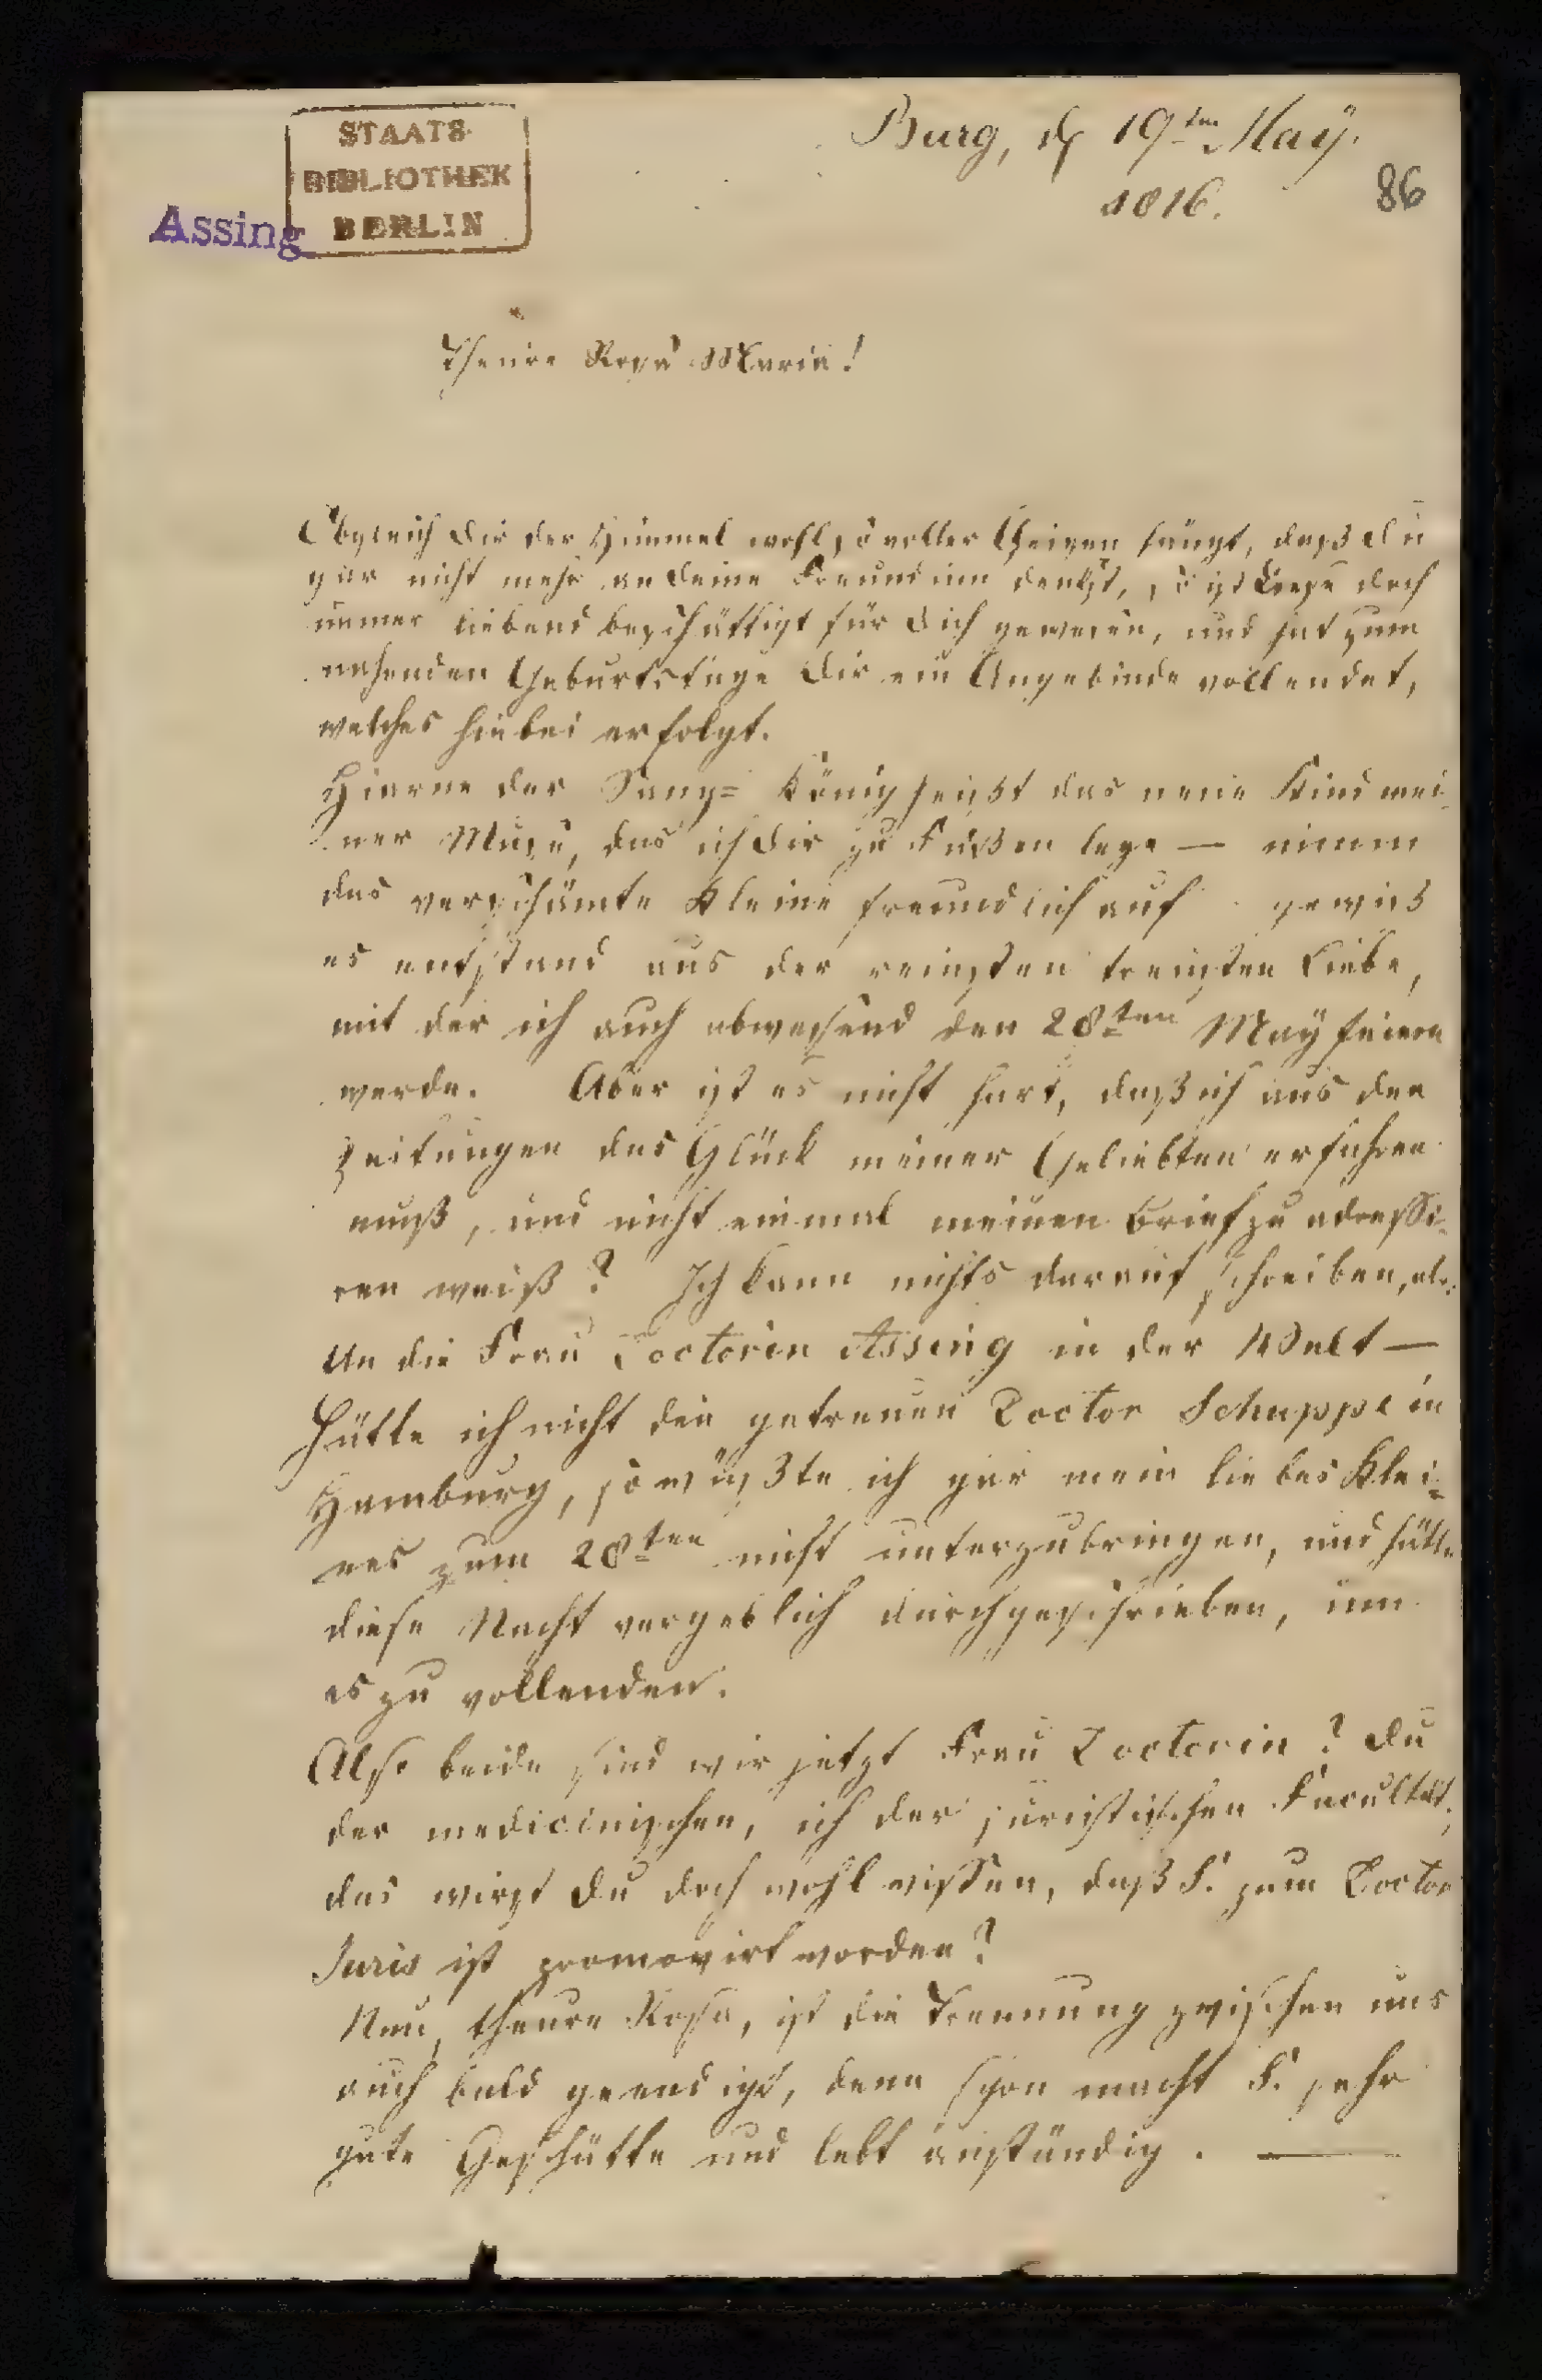 STAATS-
BIBLIOTHEK
BERLIN
Assing
Burg, d 19ten May.
1816.
86
Theure Rosa Maria!
Obgleich dir der Himmel wohl so voller Geigen hängt, daß du
gar nicht mehr an deine Freundinn denkst, so ist diese doch
immer liebend beschäftigt für dich gewesen, und hat zum
nahenden Geburtstage dir ein Angebinde vollendet,
welches hiebei erfolgt.
Hiarne der Sang= König heißt das neue Kind mei-
ner Muse, das ich dir zu Füßen lege — nimm
das verschämte Kleine freundlich auf gewiß
es entstand aus der reinsten treusten Liebe,
mit der ich auch abwesend den 28ten May feiern
werde. Aber ist es nicht hart, daß ich aus den
Zeitungen das Glück meiner Geliebten erfahren
muß, und nicht einmal meinen Brief zu adressi-
ren weiß? Ich kann nichts darauf schreiben, als:
An die Frau Doctorin Assing in der Welt —
Hätte ich nicht den getreuen Doctor Schuppe in
Hamburg, so wüßte ich gar mein liebes Klei-
nes zum 28ten nicht unterzubringen, und hätte
diese Nacht vergeblich durchgeschrieben, um
es zu vollenden.
Also beide sind wir jetzt Frau Doctorin? du
der medicinischen, ich der juristischen Facultät,
das wirst du doch wohl wissen, daß F. zum Doctor
Juris ist promovirt worden?
Nun, theure Rosa, ist die Trennung zwischen uns
auch bald geendigt, denn schon macht F. sehr
gute Geschäfte und lebt anständig. —